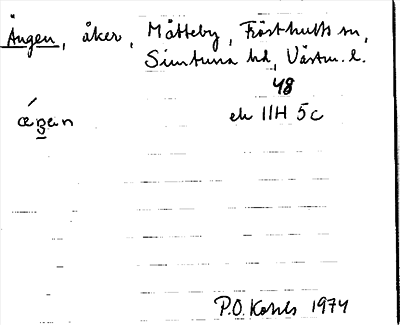 Ängen, åker, Måtteby, Frösthults sn,
Simtuna hd, Västm. l.
48
ek 11H 5c
P.O. 1974